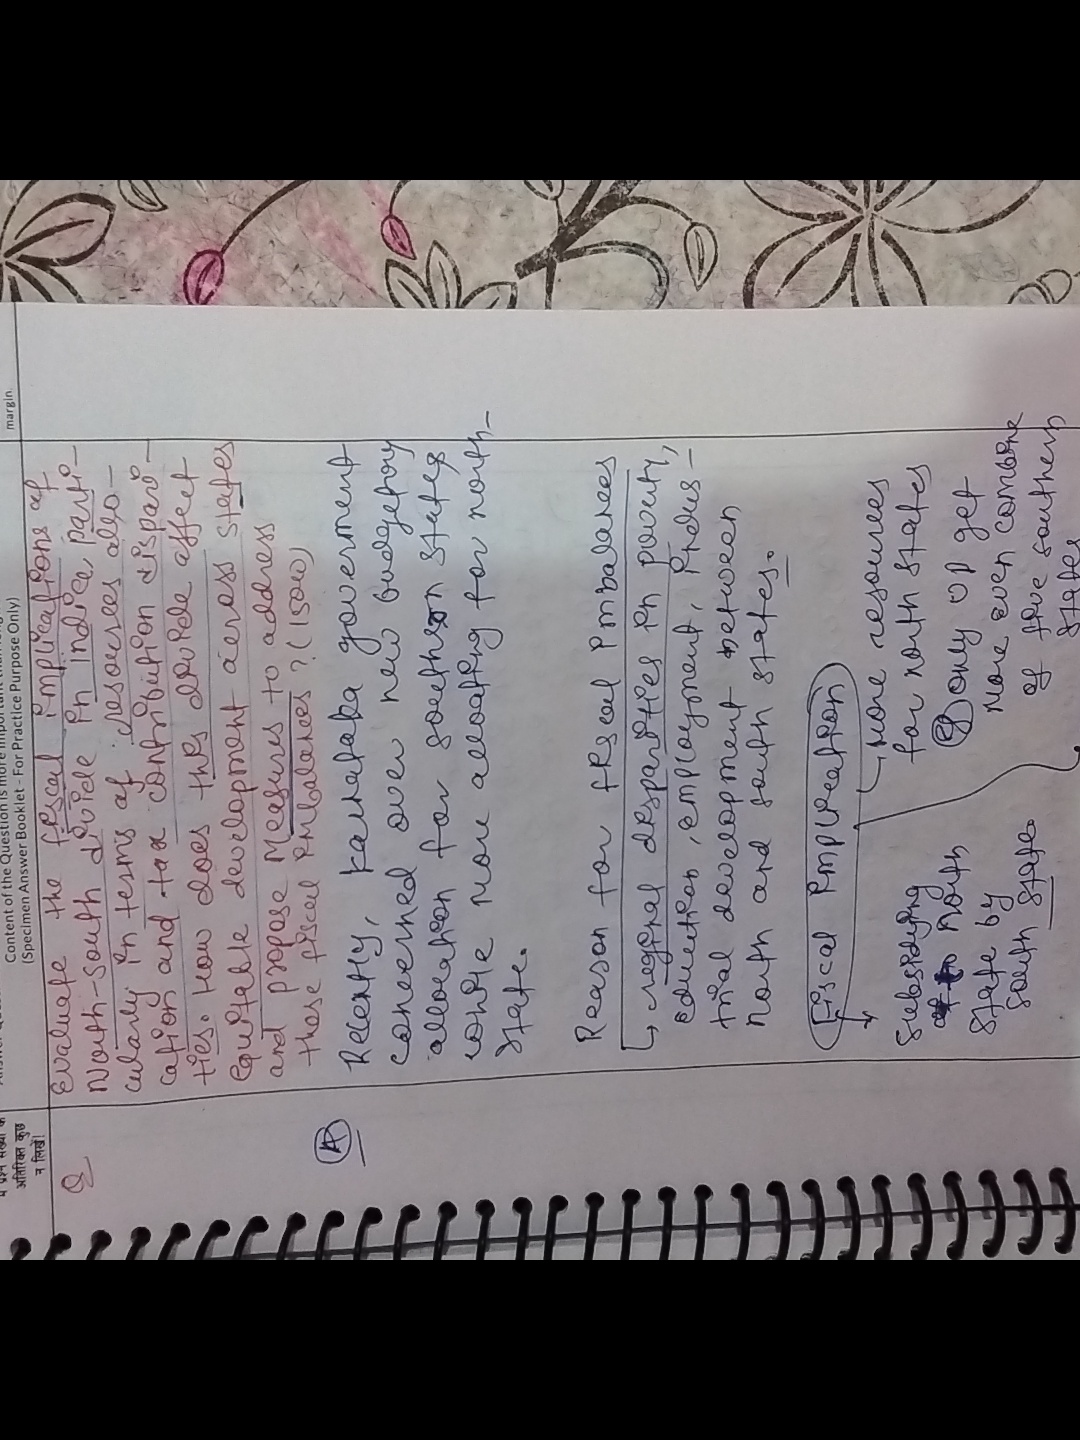 margin.
Content of the Question is more important than
(Specimen Answer Booklet - For Practice Purpose Only)
अतिरिक्त कुछ
न लिखें।
Q Evaluate the fiscal implications of
North-South divide in India parti-
cularly in terms of resources allo-
cation and tax contribution dispari-
ties. How does this divide affect
Equitable development across states
and propose Measures to address
these fiscal imbalances? (150W)
A Recently, Karnataka goverment
concerned over new budgetary
allocation for southern states
while more allocating for north-
state.
Reason for fiscal Imbalances
↳ regional disparities in poverty,
education, employment, indus-
trial development between
North and south states.
Fiscal Implication
Subsidying
North
State by
South State.
→ More resources
for north states
Eg only UP get
more even combine
of five southern
States